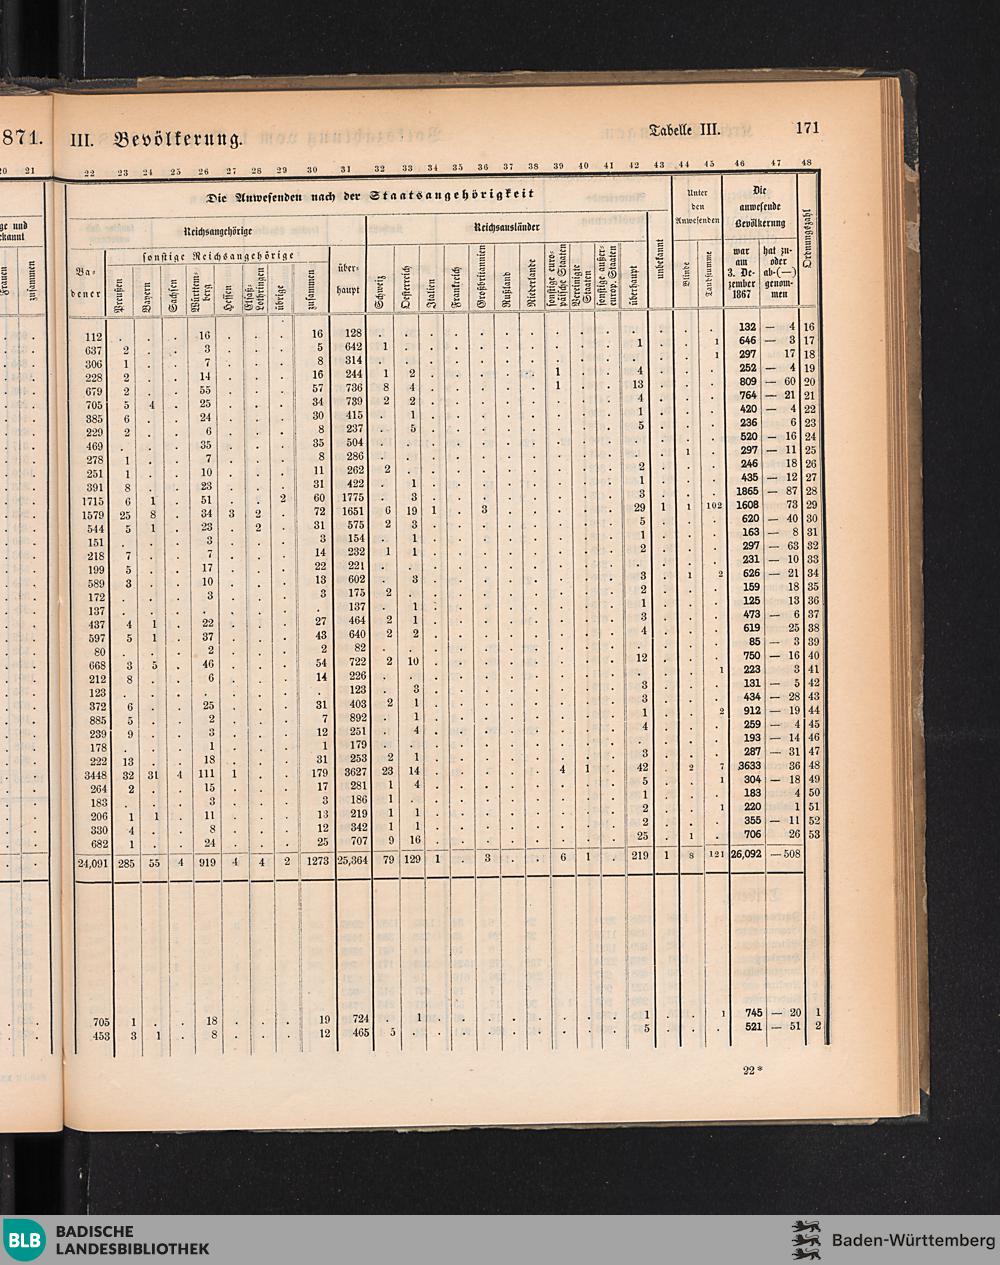 871.
III. Bevölkerung.
Tabelle III.
171
20 21
22 23 24 25 26 27 28 29 30 31 32 33 34 35 36 37 38 39 40 41 42 43 44 45 46 47 48
Die Anwesenden nach der Staatsangehörigkeit
Unter den Anwesenden
Die anwesende Bevölkerung
Ordnungszahl
Reichsangehörige
Reichsausländer
unbekannt
Blinde
Taubstumme
war am 3. Dezember 1867
hat zu- oder ab-(—) genommen
Badener
sonstige Reichsangehörige
überhaupt
Preußen
Bayern
Sachsen
Württemberg
Hessen
Elsaß-Lothringen
übrige
zusammen
Schweiz
Oesterreich
Italien
Frankreich
Großbritannien
Rußland
Niederlande
sonstige europäische Staaten
Vereinigte Staaten
sonstige außereurop. Staaten
überhaupt
Frauen
zusammen
112 . . . 16 . . . 16 128 . . . . . . . . . . . . . . 132 — 4 16
637 2 . . 3 . . . 5 642 1 . . . . . . . . . 1 . . 1 646 — 3 17
306 1 . . 7 . . . 8 314 . . . . . . . . . . . . . 1 297 17 18
228 2 . . 14 . . . 16 244 1 2 . . . . . 1 . . 4 . . . 252 — 4 19
679 2 . . 55 . . . 57 736 8 4 . . . . . 1 . . 13 . . . 809 — 60 20
705 5 4 . 25 . . . 34 739 2 2 . . . . . . . . 4 . . . 764 — 21 21
385 6 . . 24 . . . 30 415 . 1 . . . . . . . . 1 . . . 420 — 4 22
229 2 . . 6 . . . 8 237 . 5 . . . . . . . . 5 . . . 236 6 23
469 . . . 35 . . . 35 504 . . . . . . . . . . . . . . 520 — 16 24
278 1 . . 7 . . . 8 286 . . . . . . . . . . . . 1 . 297 — 11 25
251 1 . . 10 . . . 11 262 2 . . . . . . . . . 2 . . . 246 18 26
391 8 . . 23 . . . 31 422 . 1 . . . . . . . . 1 . . . 435 — 12 27
1715 6 1 . 51 . . 2 60 1775 . 3 . . . . . . . . 3 . . . 1865 — 87 28
1579 25 8 . 34 3 2 . 72 1651 6 19 1 . 3 . . . . . 29 1 1 102 1608 73 29
544 5 1 . 23 . 2 . 31 575 2 3 . . . . . . . . 5 . . . 620 — 40 30
151 . . . 3 . . . 3 154 . 1 . . . . . . . . 1 . . . 163 — 8 31
218 7 . . 7 . . . 14 232 1 1 . . . . . . . . 2 . . . 297 — 63 32
199 5 . . 17 . . . 22 221 . . . . . . . . . . . . . . 231 — 10 33
589 3 . . 10 . . . 13 602 . 3 . . . . . . . . 3 . 1 2 626 — 21 34
172 . . . 3 . . . 3 175 2 . . . . . . . . . 2 . . . 159 18 35
137 . . . . . . . . 137 . 1 . . . . . . . . 1 . . . 125 13 36
437 4 1 . 22 . . . 27 464 2 1 . . . . . . . . 3 . . . 473 — 6 37
597 5 1 . 37 . . . 43 640 2 2 . . . . . . . . 4 . . . 619 25 38
80 . . . 2 . . . 2 82 . . . . . . . . . . . . . . 85 — 3 39
668 3 5 . 46 . . . 54 722 2 10 . . . . . . . . 12 . . . 750 — 16 40
212 8 . . 6 . . . 14 226 . . . . . . . . . . . . . 1 223 3 41
123 . . . . . . . . 123 . 3 . . . . . . . . 3 . . . 131 — 5 42
372 6 . . 25 . . . 31 403 2 1 . . . . . . . . 3 . . . 434 — 28 43
885 5 . . 2 . . . 7 892 . 1 . . . . . . . . 1 . . 2 912 — 19 44
239 9 . . 3 . . . 12 251 . 4 . . . . . . . . 4 . . . 259 — 4 45
178 . . . 1 . . . 1 179 . . . . . . . . . . . . . . 193 — 14 46
222 13 . . 18 . . . 31 253 2 1 . . . . . . . . 3 . . . 287 — 31 47
3448 32 31 4 111 1 . . 179 3627 23 14 . . . . . 4 1 . 42 . 2 7 3633 36 48
264 2 . . 15 . . . 17 281 1 4 . . . . . . . . 5 . . 1 304 — 18 49
183 . . . 3 . . . 3 186 1 . . . . . . . . . 1 . . . 183 4 50
206 1 1 . 11 . . . 13 219 1 1 . . . . . . . . 2 . . 1 220 1 51
330 4 . . 8 . . . 12 342 1 1 . . . . . . . . 2 . . . 355 — 11 52
682 1 . . 24 . . . 25 707 9 16 . . . . . . . . 25 . 1 . 706 26 53
24,091 285 55 4 919 4 4 2 1273 25,364 79 129 1 . 3 . . 6 1 . 219 1 8 121 26,092 —508
705 1 . . 18 . . . 19 724 . 1 . . . . . . . . 1 . . 1 745 — 20 1
453 3 1 . 8 . . . 12 465 5 . . . . . . . . . 5 . . . 521 — 51 2
22*
BLB BADISCHE LANDESBIBLIOTHEK
Baden-Württemberg